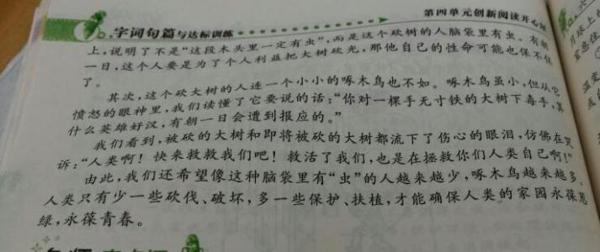 字词句篇与达标训练
第四单元创新阅读开心
上，说明了不是“这段木头里一定有虫”，而是这个砍树的人脑袋里有虫。有朝
一日，这个人要是为了个人利益把大树砍光，那他自己的性命可能也保不住
了。
其次，这个砍大树的人连一个小小的啄木鸟也不如。啄木鸟虽小，但从它
愤怒的眼神里，我们读懂了它要说的话：“你对一棵手无寸铁的大树下毒手，算
什么英雄好汉，有朝一日会遭到报应的。”
我们看到，被砍的大树和即将被砍的大树都流下了伤心的眼泪，仿佛在哭
诉：“人类啊！快来救救我们吧！救活了我们，也是在拯救你们人类自己啊！”
由此，我们还希望像这种脑袋里有“虫”的人越来越少，啄木鸟越来越多，
人类只有少一些砍伐、破坏，多一些保护、扶植，才能确保人类的家园永葆葱
绿，永葆青春。